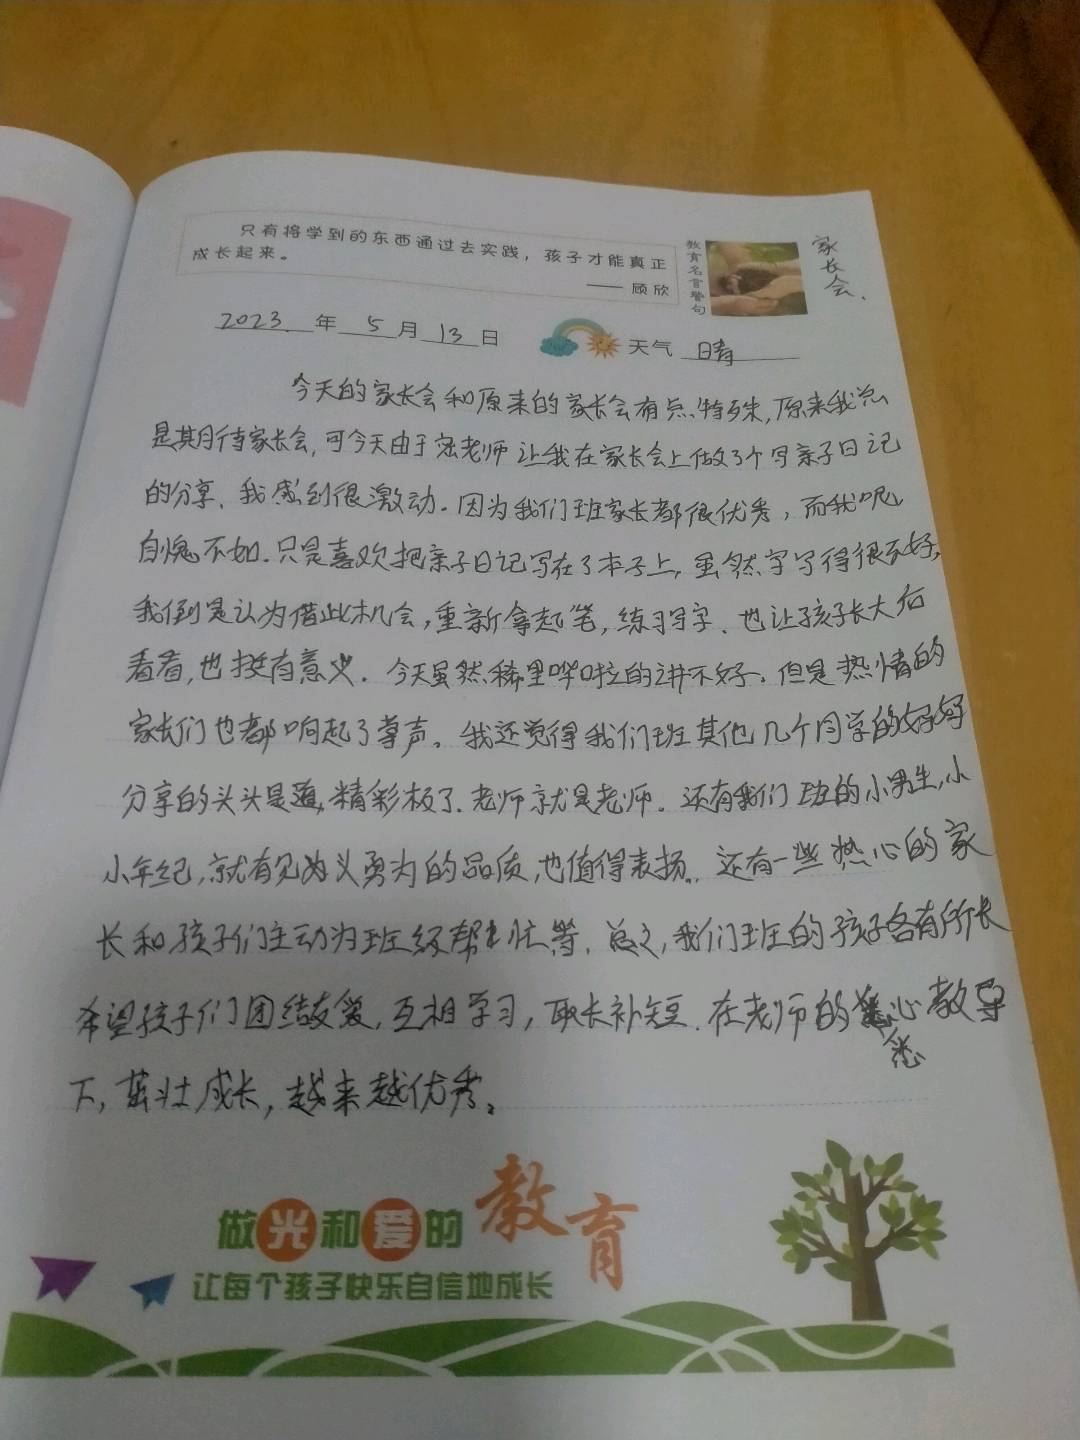 只有将学到的东西通过去实践，孩子才能真正
成长起来。
—— 顾欣
教育名言警句
家长会.
2023. 年 5 月 13 日
天气 晴
今天的家长会和原来的家长会有点特殊,原来我总
是其月待家长会,可今天由于 老师让我在家长会上做了个写亲子日记
的分享、我感到很激动.因为我们班家长都很优秀,而我呢
自愧不如.只是喜欢把亲子日记写在了本子上,虽然字写得很不好,
我倒是认为借此机会,重新拿起笔,练习写字、也让孩子长大后
看看,也挺有意义.今天虽然稀里哗啦的讲不好.但是热情的
家长们也都响起了掌声。我还觉得我们班其他几个同学的妈妈
分享的头头是道,精彩极了.老师就是老师.还有我们班的小男生,小
小年纪,就有见义勇为的品质,也值得表扬.还有一些热心的家
长和孩子们主动为班级帮忙等.总之,我们班的孩子各有所长
希望孩子们团结友爱,互相学习,取长补短.在老师的悉心教导
下,茁壮成长,越来越优秀。
做光和爱的教育
让每个孩子快乐自信地成长